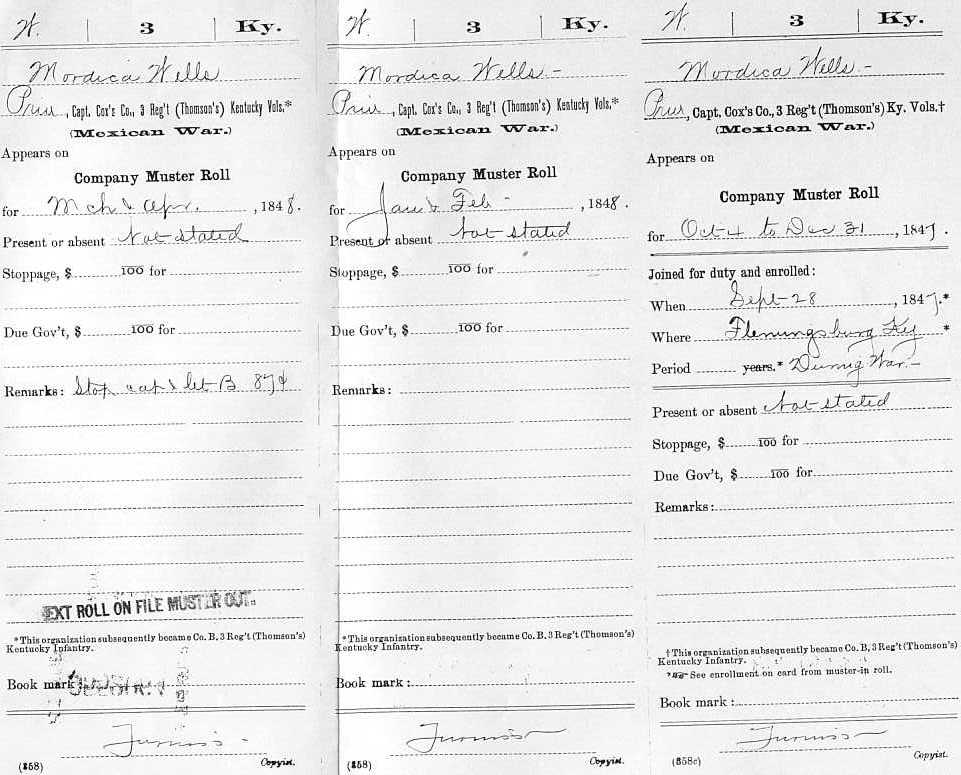 W. | 3 | Ky.
Mordica Wells
Priv, Capt. Cox's Co., 3 Reg't (Thomson's) Kentucky Vols.*
(Mexican War.)
Appears on
Company Muster Roll
for Mch & Apr., 1848.
Present or absent Not stated
Stoppage, $ 100 for
Due Gov't, $ 100 for
Remarks: Stop cap & let B 87¢
NEXT ROLL ON FILE MUSTER OUT.
*This organization subsequently became Co. B, 3 Reg't (Thomson's)
Kentucky Infantry.
Book mark:
Furniss
(358) Copyist.
W. | 3 | Ky.
Mordica Wells -
Priv, Capt. Cox's Co., 3 Reg't (Thomson's) Kentucky Vols.*
(Mexican War.)
Appears on
Company Muster Roll
for Jan & Feb -, 1848.
Present or absent Not stated
Stoppage, $ 100 for
Due Gov't, $ 100 for
Remarks:
*This organization subsequently became Co. B, 3 Reg't (Thomson's)
Kentucky Infantry.
Book mark:
Furniss
(358) Copyist.
W. | 3 | Ky.
Mordica Wells -
Priv, Capt. Cox's Co., 3 Reg't (Thomson's) Ky. Vols.†
(Mexican War.)
Appears on
Company Muster Roll
for Oct 4 to Dec 31, 1847.
Joined for duty and enrolled:
When Sept 28, 1847.*
Where Flemingsburg Ky *
Period years.* During War -
Present or absent Not stated
Stoppage, $ 100 for
Due Gov't, $ 100 for
Remarks:
†This organization subsequently became Co. B, 3 Reg't (Thomson's)
Kentucky Infantry.
* See enrollment on card from muster-in roll.
Book mark:
Furniss
(358c) Copyist.